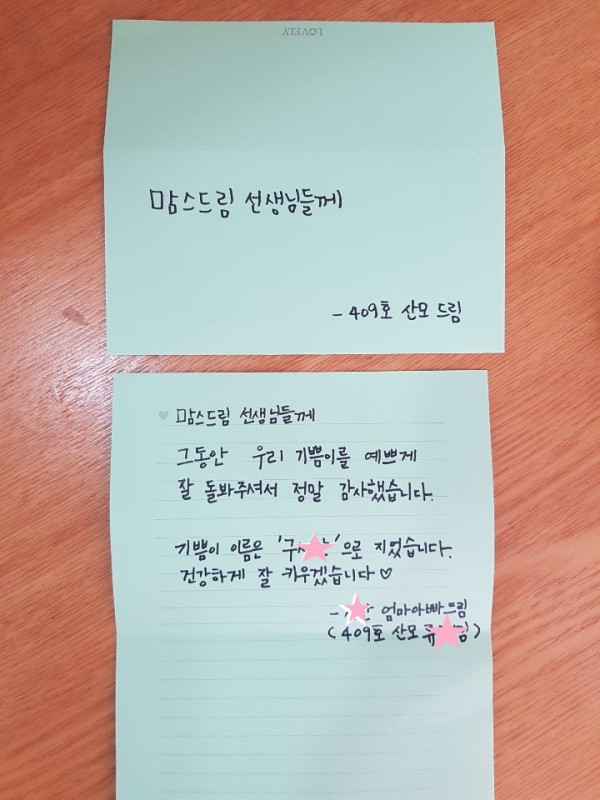 LOVELY
맘스드림 선생님들께
- 409호 산모 드림
맘스드림 선생님들께
그동안 우리 기쁨이를 예쁘게
잘 돌봐주셔서 정말 감사했습니다.
기쁨이 이름은 '구'으로 지었습니다.
건강하게 잘 키우겠습니다♡
- 엄마아빠드림
(409호 산모 )